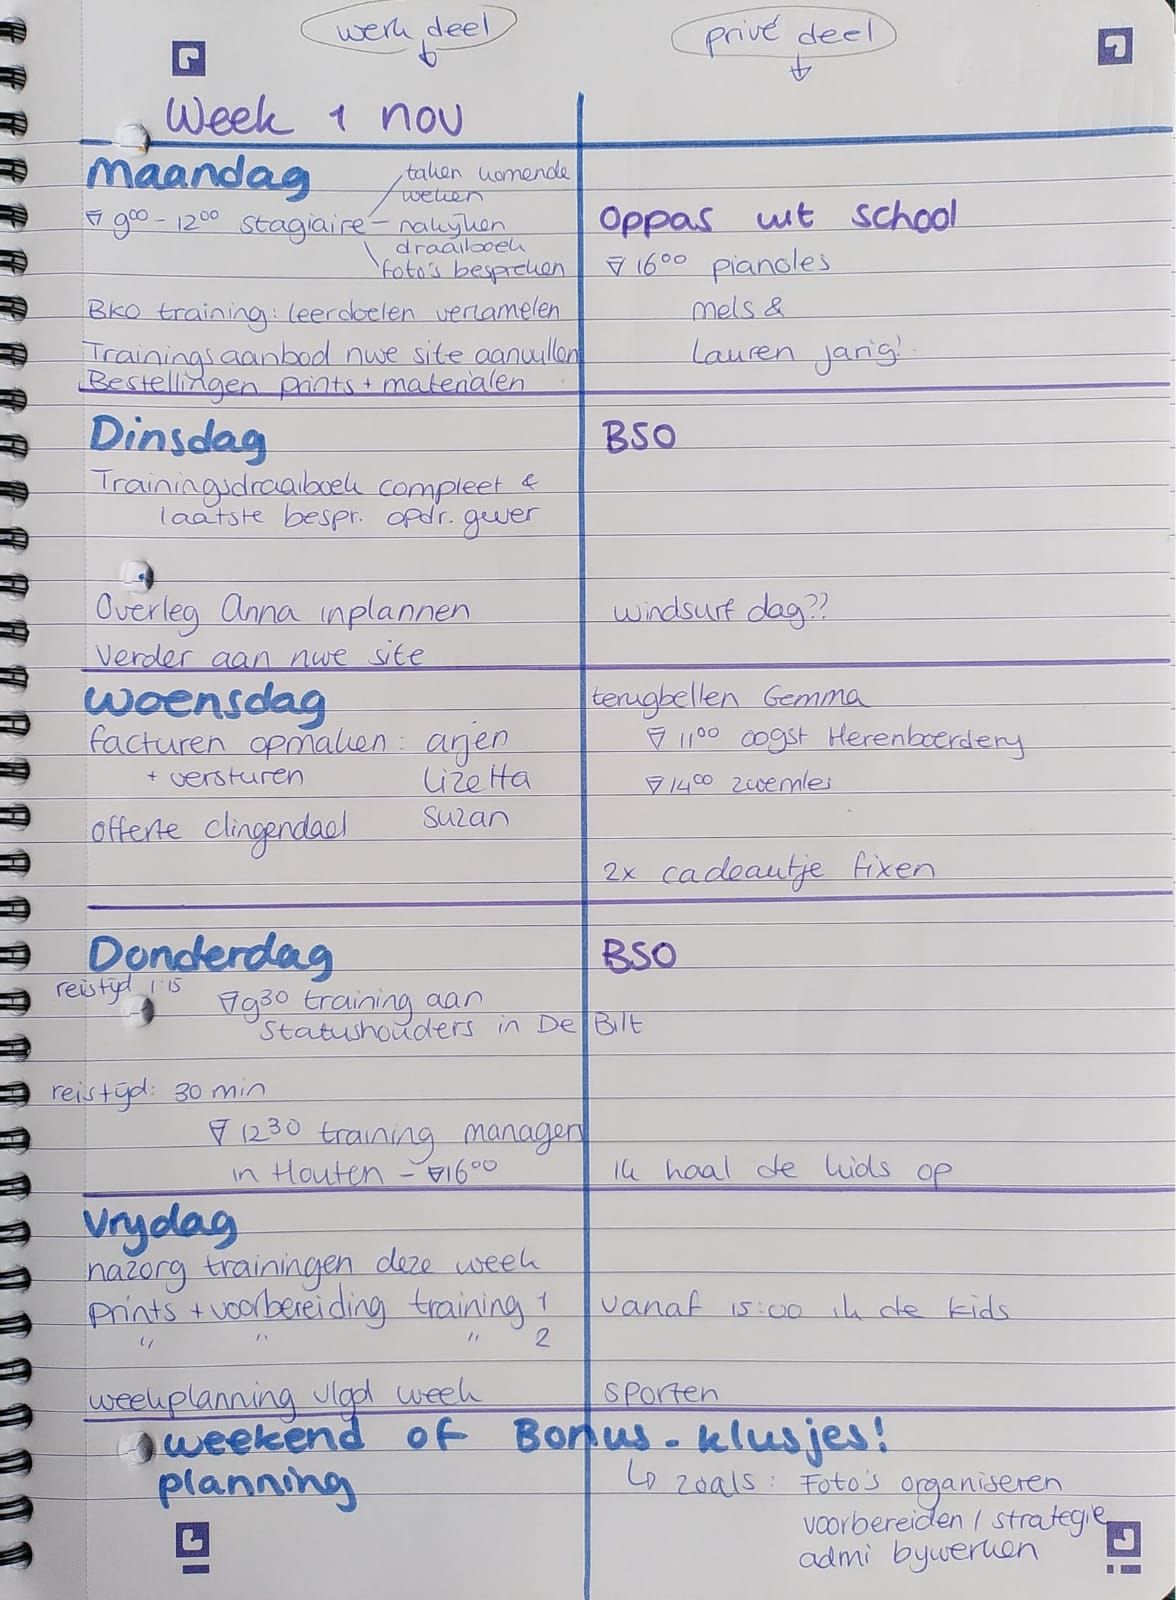 werk deel
privé deel
Week 1 nov
maandag
taken komende
weken
9⁰⁰ - 12⁰⁰ stagiaire - nakijken
draaiboek
foto's bespreken
Oppas uit school
16⁰⁰ pianoles
BKO training: leerdoelen verzamelen
mels &
Trainingsaanbod nwe site aanvullen
Lauren jarig!
Bestellingen prints + materialen
Dinsdag
BSO
Trainingsdraaiboek compleet &
laatste bespr. opdr. gever
Overleg Anna inplannen
windsurf dag??
Verder aan nwe site
woensdag
terugbellen Gemma
facturen opmaken: arjen
11⁰⁰ oogst Herenboerderij
+ versturen Lizetta
14⁰⁰ zwemles
offerte clingendael Suzan
2x cadeautje fixen
Donderdag
BSO
reistijd 1:15
9³⁰ training aan
Statushouders in De Bilt
reistijd: 30 min
12³⁰ training managen
in Houten - 16⁰⁰
ik haal de kids op
vrijdag
nazorg trainingen deze week
prints + voorbereiding training 1
vanaf 15:00 ik de kids
" " " 2
weekplanning vlgd week
sporten
weekend of Bonus-klusjes!
planning
↳ zoals: Foto's organiseren
voorbereiden / strategie
admi bijwerken